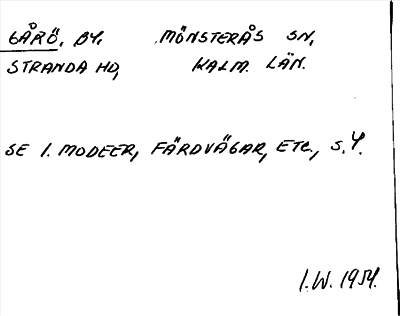 GÅRÖ, BY. MÖNSTERÅS SN,
STRANDA HD, KALM. LÄN.
SE I. MODEER, FÄRDVÄGAR, ETC., S. 4.
I.W. 1954.